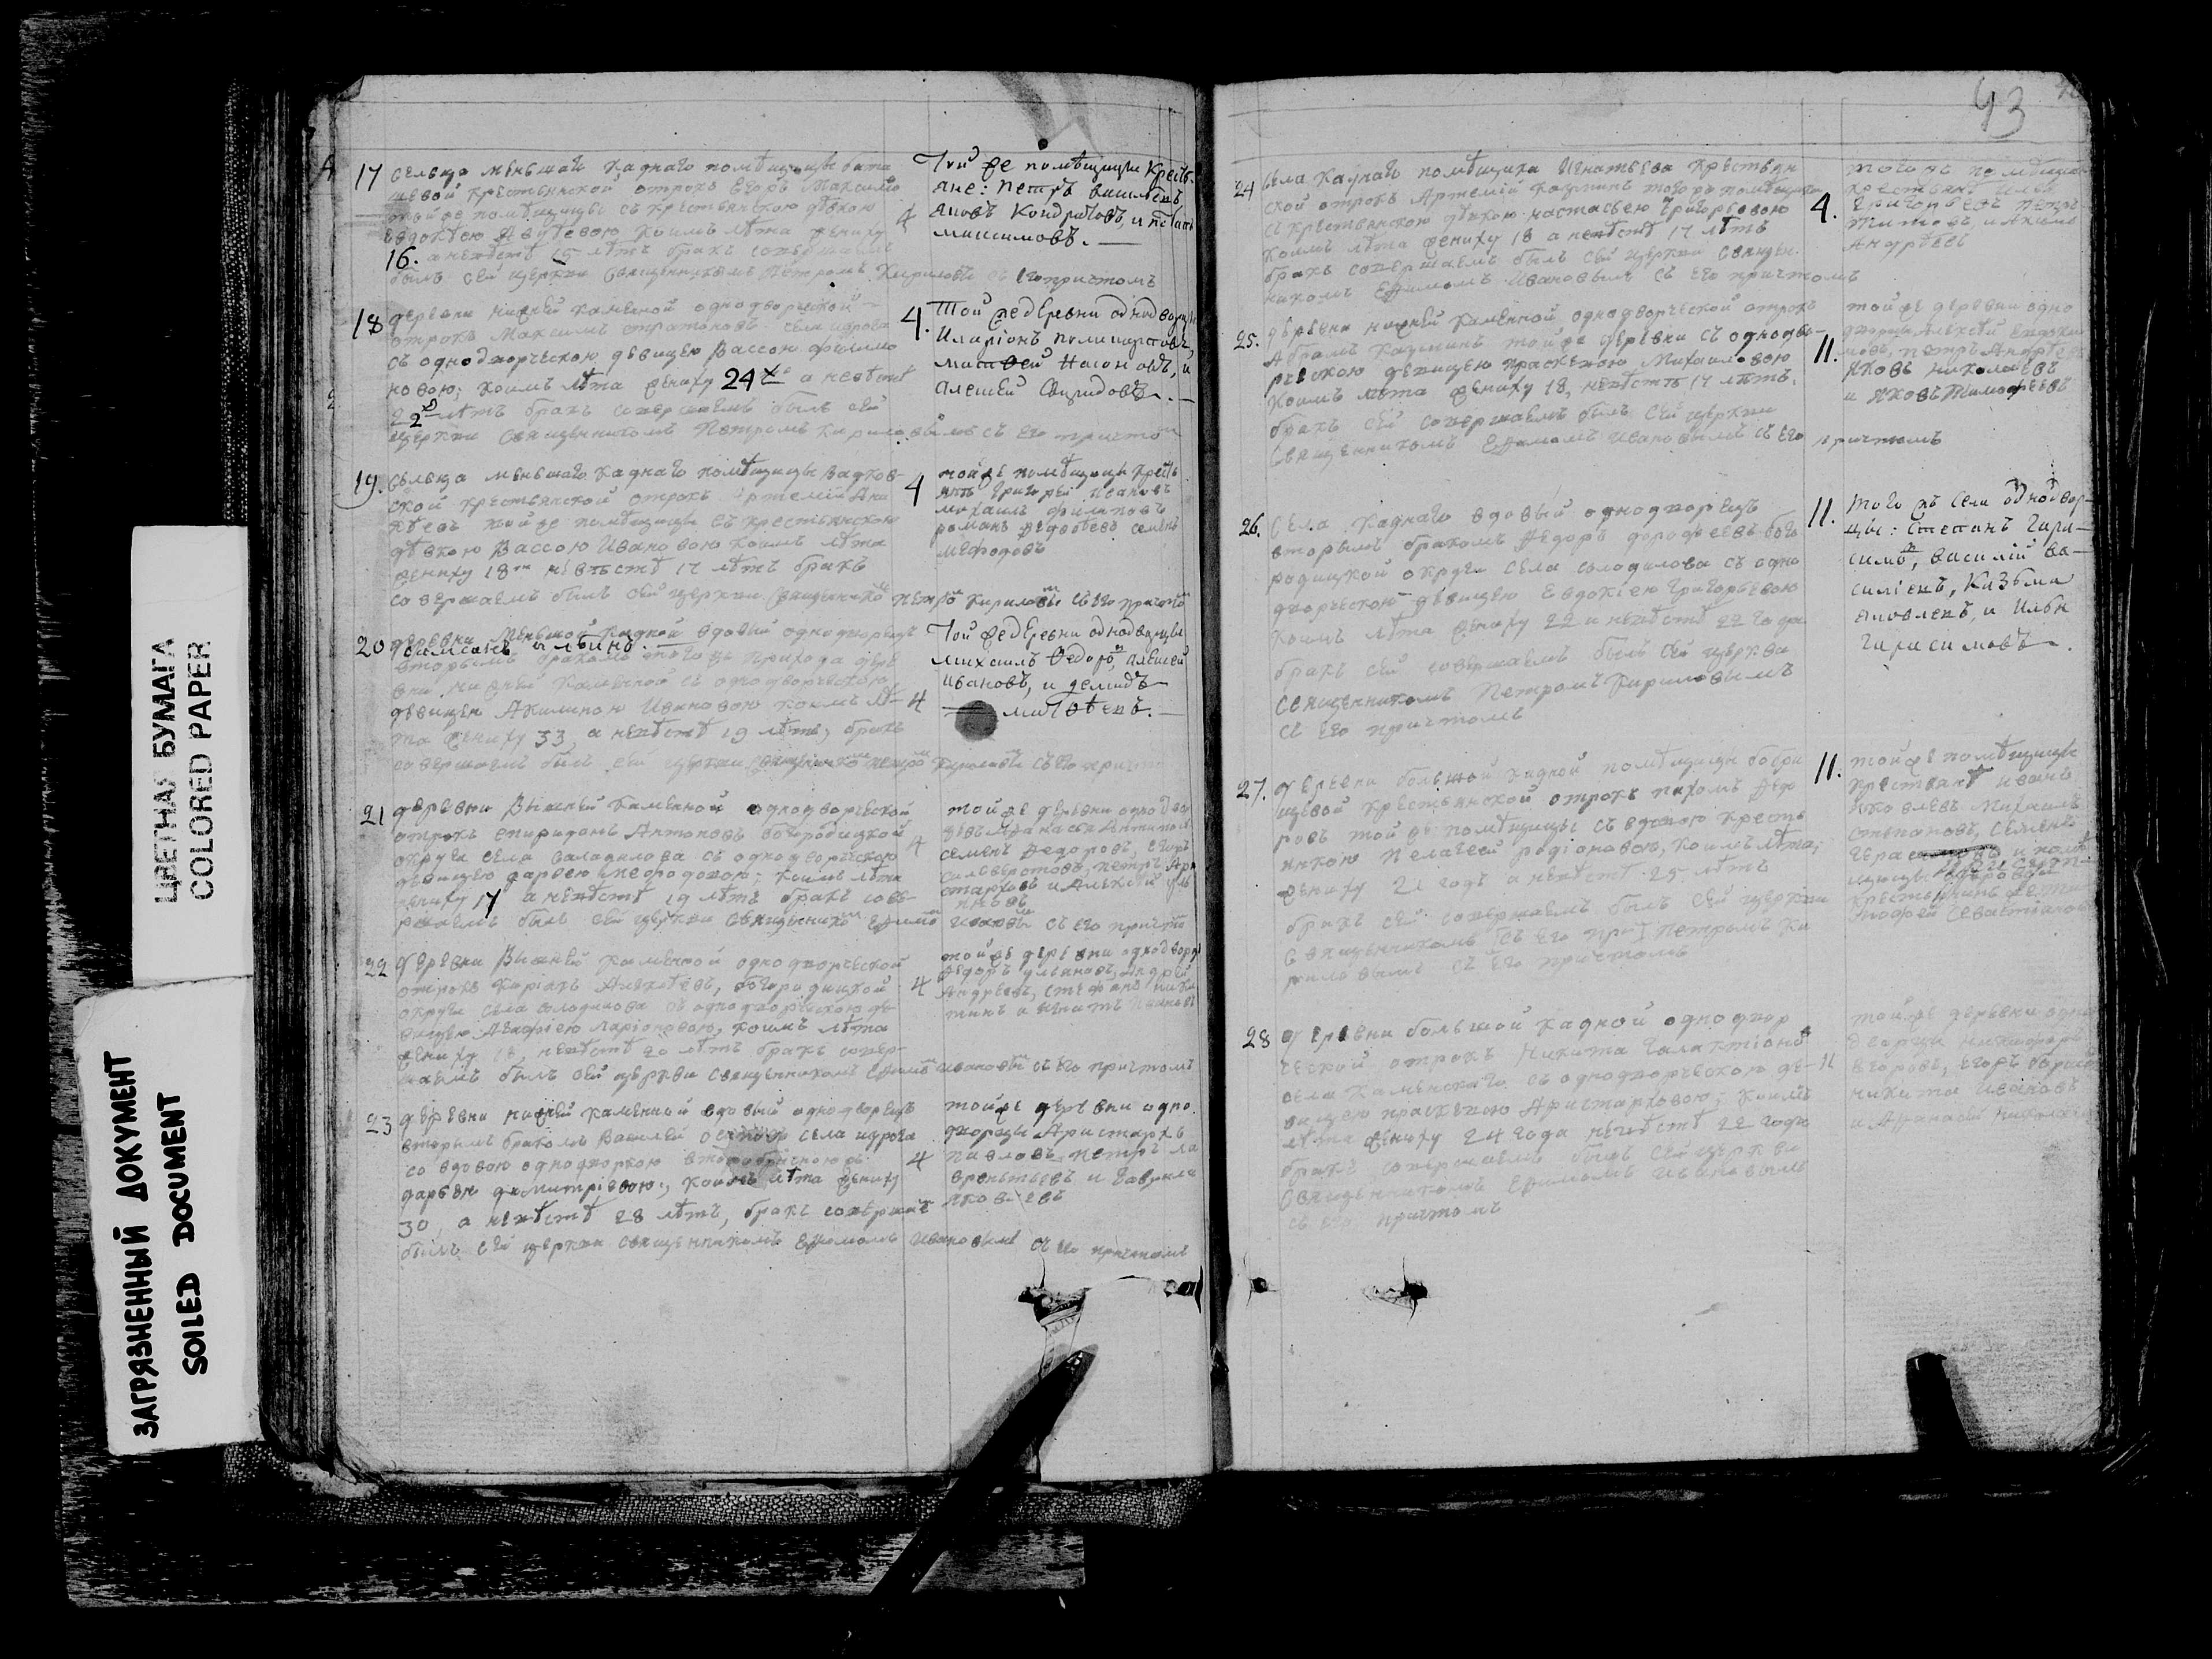 17 сельца меньшаго Каднаго помѣщицы бата
шевой крестьянской отрокъ Егоръ Максимо
тойже помѣщицы съ крестьянскою дѣвкою
Евдокѣею Авуѣевою коимъ лѣта жениху
16. а невѣстѣ 15 лѣтъ бракъ совершаемъ
былъ сей церкви священникомъ Петромъ Кириловы съ его причтомъ
4
Той же помѣщицы Кресть-
яне: Петръ
Яковъ Кондратовъ, и
Максимовъ.
18 деревни нижней Каменной однодворческой
отрокъ Максимъ
съ однодворческою дѣвицею Вассою филимо
новою; коимъ лѣта жениху 24 а невѣстѣ
22 лѣтъ бракъ совершаемъ былъ сей
церкви священникомъ Петромъ Кириловымъ съ его причтом
4.
Той же деревни однодворцы
Иларіонъ поликарповъ,
матвей Насоновъ, и
Алексей Свиридовъ.
19. сельца меньшаго Каднаго помѣщицы Вадков-
ской крестьянской отрокъ Артемій Ани
кѣевъ тойже помѣщицы съ крестьянскою
дѣвкою Вассою Ивановою коимъ лѣта
жениху 18 невѣстѣ 17 лѣтъ бракъ
совершаемъ былъ сей церкви священнико Петро Кирилов съ его причто
4
тойже помѣщицы кресть
янъ Григорей Ивановъ
михаилъ филиповъ
романъ Федотьевъ семенъ
мефодовъ
20 деревни Меньшой Кадной вдовый однодворецъ
Симіонъ
вторымъ бракомъ тогожъ прихода дере
вни нижней Каменной съ однодворческою
дѣвицею Акилиною Ивановою коимъ лѣ-
та жениху 33, а невѣстѣ 19 лѣтъ, бракъ
совершаемъ былъ сей церкви священнико петро Кирилов съ его причто
4
Той же деревни однодворцы
михаилъ Федоро, алексей
Ивановъ, и демидъ
матвѣевъ.
21 деревни Вышней Каменной однодворческой
отрокъ спиридонъ Антоновъ богородицкой
округи села Саладилова съ однодворческою
дѣвицею дарьею мефодовою; коимъ лѣта
жениху 17 а невѣстѣ 19 лѣтъ бракъ сове-
ршаемъ былъ сей церкви священнико Ефимо Иванов съ его причто
4
тойже деревни однодвор
семенъ Федоровъ, Егоръ
силеверстовъ, петръ Ари
старховъ и Алексѣй
22 деревни Вышней Каменной однодворческой
отрокъ Карпъ Аникѣевъ, богородицкой
округи села солодилова съ однодворческою дѣ
вицею Агафіею Ларіоновою, коимъ лѣта
жениху 18, невѣстѣ 20 лѣтъ бракъ совер-
шаемъ былъ сей церкви священникомъ Ефимо Иванов съ его причтомъ
4
тойже деревни однодворц
Федоръ ульяновъ, Андрей
Андреевъ, стефанъ ники
тинъ и Игнатъ Ивановъ
23 деревни нижней Каменной вдовый однодворецъ
вторымъ бракомъ Василей Осиповъ села
со вдовою однодворкою второбрачною
дарьею димитріевою; коимъ лѣта жениху
30, а невѣстѣ 28 лѣтъ, бракъ совершае
былъ сей церкви священникомъ Ефимомъ Ивановымъ съ его причтомъ
4
тойже деревни одно
дворцы Аристархъ
павловъ петръ ла
врентьевъ и Гаврила
Яковлевъ
43
24 села Каднаго помѣщика Игнатьева крестьян
ской отрокъ Артемій Кузминъ тогожъ помѣщика
съ крестьянскою дѣвкою настасьею Григорьевою
коимъ лѣта жениху 18 а невѣстѣ 17 лѣтъ
бракъ совершаемъ былъ сей церкви священ-
никомъ Ефимомъ Ивановымъ съ его причтомъ
4.
тогожъ помѣщика
крестьянъ Илья
Григорьевъ петръ
Титовъ, и Акимъ
Андрѣевъ
25. деревни нижней Каменной однодворческой отрокъ
Абрамъ Казминъ тойже деревни съ однодво-
рческою девицею праскевою Михаиловою
коимъ лѣта жениху 18, невѣстѣ 17 лѣтъ.
бракъ сей совершаемъ былъ сей церкви
священникомъ Ефимомъ Ивановымъ съ его причтомъ
11.
тойже деревни одно
дворцы Алексѣй Евдоки
мовъ, петръ Андрѣе
Яковъ николаевъ
и Яковъ Тимофеевъ
26. села Каднаго вдовый однодворецъ
вторымъ бракомъ Федоръ дорофеевъ бого
родицкой округи села солодилова съ одно
дворческою девицею Евдокіею Григорьевою
коимъ лѣта жениху 22 и невѣстѣ 22 года
бракъ сей совершаемъ былъ сей церкви
священникомъ Петромъ Кириловымъ
съ его причтомъ
11.
того жъ села однодвор-
цы: Степанъ Гара-
симъ, Василій ва-
силіевъ, Казьма
яковлевъ, и Илья
Гарасимовъ.
27. деревни большой Кадной помѣщицы бобри
щевой крестьянской отрокъ пахомъ Федо
ровъ той же помѣщицы съ вдовою кресть
янкою Пелагеей родіоновою, коимъ лѣта;
жениху 21 годъ а невѣстѣ 25 лѣтъ
бракъ сей совершаемъ былъ сей церкви
священникомъ съ его при Петромъ Ки
риловымъ съ его причтомъ
11.
тойже помѣщицы
крестьянъ иванъ
Яковлевъ Михаилъ
степановъ, семенъ
28 деревни большой Кадной однодвор
ческой отрокъ Никита Галактіоно
села Каменскаго съ однодворческою де-
вицею праскевою Аристарховою; коимъ
лѣта жениху 24 года невѣстѣ 22 года
бракъ совершаемъ былъ сей церкви
священникомъ Ефимомъ Ивановымъ
съ его причтомъ
11
тойже деревни одно
дворцы никифоръ
Егоровъ, Егоръ
никита Ивановъ
и Афанасей николаев
ЦВЕТНАЯ БУМАГА
COLORED PAPER
ЗАГРЯЗНЕННЫЙ ДОКУМЕНТ
SOILED DOCUMENT